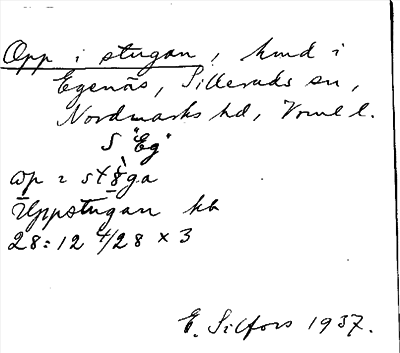 Opp i stugan, hmd i
Egenäs, Silleruds sn,
Nordmarks hd, Vrml l.
S "Eg"
Uppstugan kb
28:12 4/28 x 3
E. Silfors 1937.